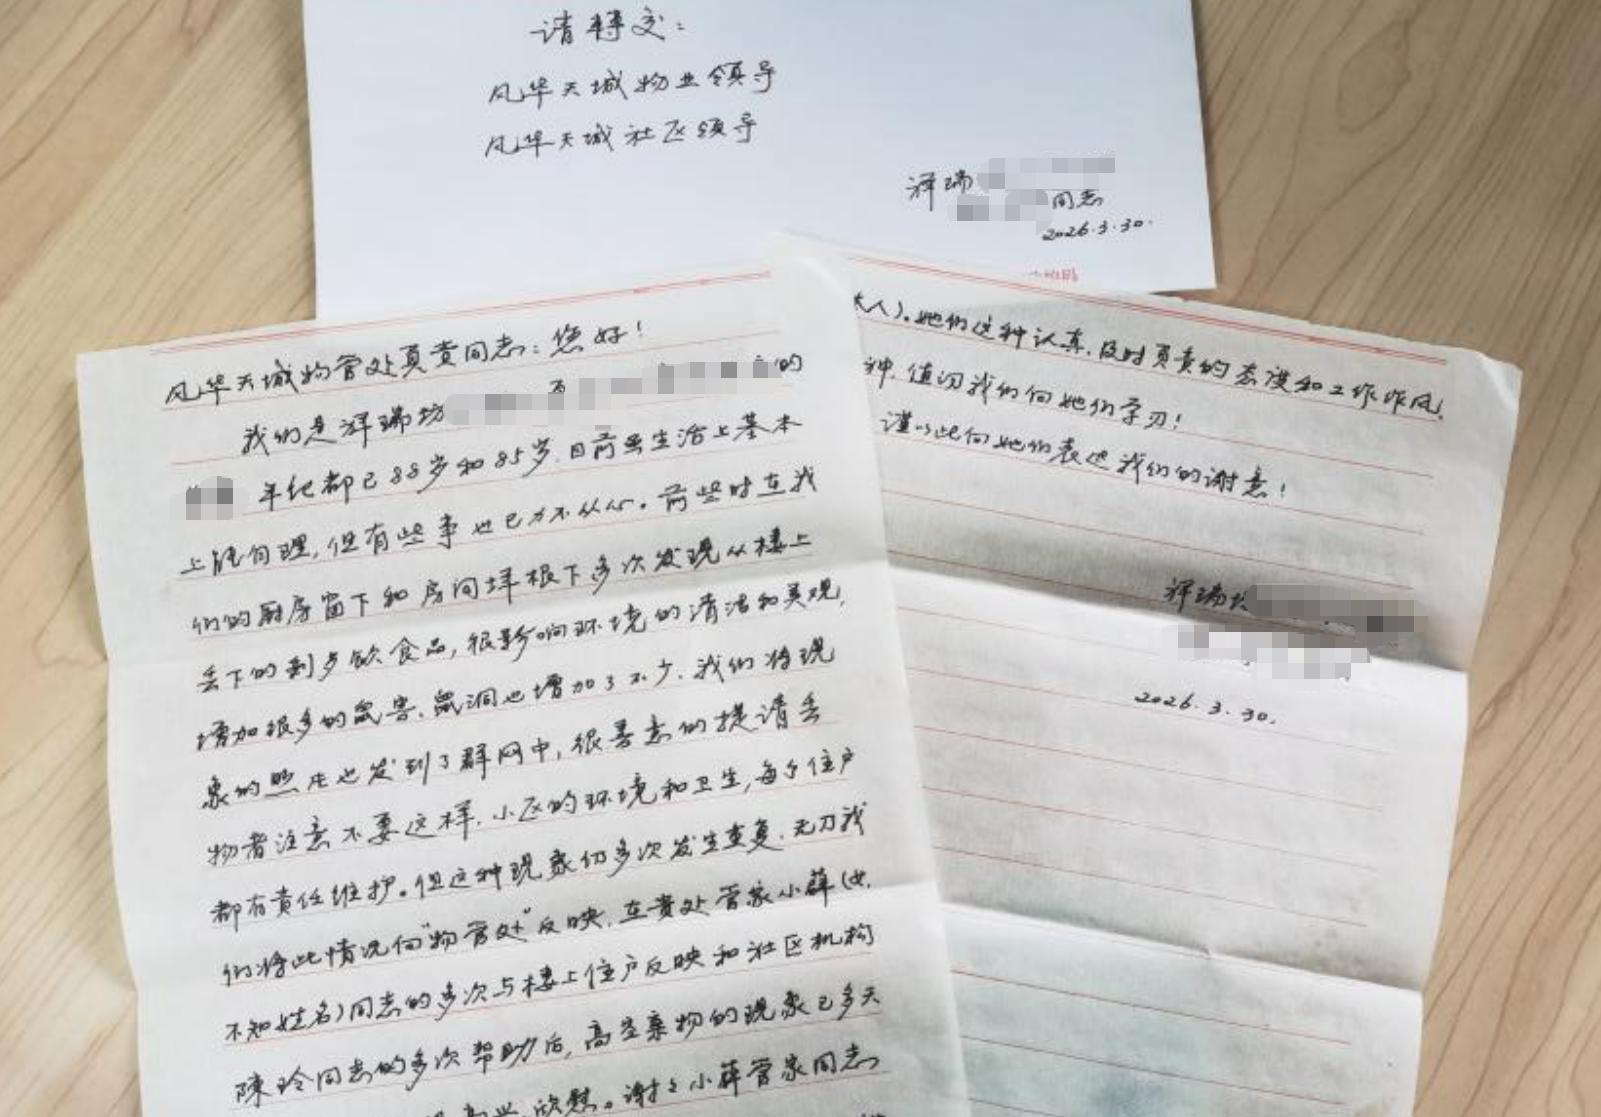 请转交：
风华天城物业领导
风华天城社区领导
祥瑞
同志
2026.3.30.
风华天城物管处负责同志：您好！
我们是祥瑞坊
的
年纪都已88岁和85岁，目前虽生活上基本
上能自理，但有些事也已力不从心。前些时在我
们的厨房窗下和房间墙根下多次发现从楼上
丢下的剩余饮食品，很影响环境的清洁和美观，
增加很多的鼠害，鼠洞也增加了不少，我们将现
象的照片也发到了群网中，很善意的提请丢
物者注意不要这样，小区的环境和卫生，每个住户
都有责任维护。但这种现象仍多次发生重复，无力我
们将此情况向“物管处”反映，在贵处管家小薛（女，
不知姓名）同志的多次与楼上住户反映和社区机构
陳玲同志的多次帮助后，高空弃物的现象已多天
高兴，欣慰。谢谢小薛管家同志
人）。她们这种认真，及时负责的态度和工作作风，
种，值得我们向她们学习！
谨以此向她们表达我们的谢意！
祥瑞坊
2026.3.30.